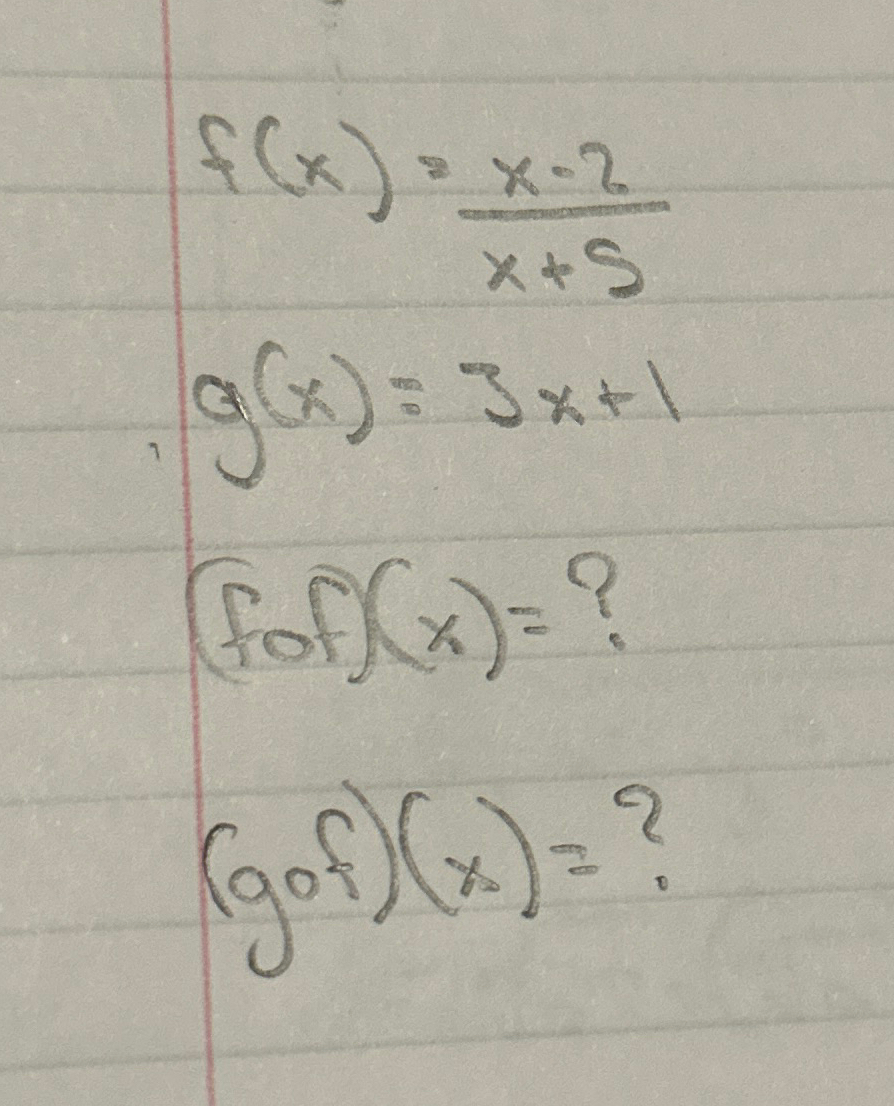 f(x) = x-2
x+5
g(x) = 3x+1
(fof)(x) = ?
(gof)(x) = ?